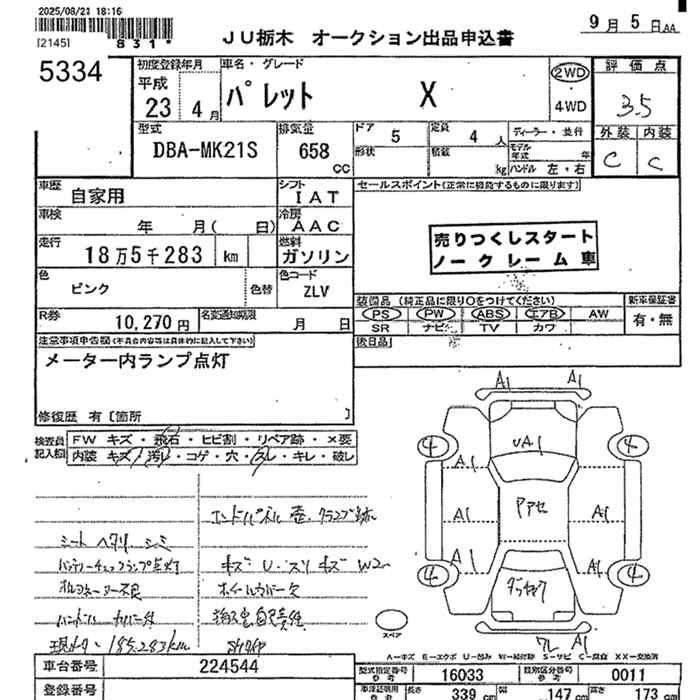 2025/08/21 18:16
[2145]
831*
JU栃木 オークション出品申込書
9月5日AA
5334
初度登録年月
平成
23 4月
車名・グレード
パレット X
2WD
4WD
評価点
3.5
外装 内装
C C
型式
DBA-MK21S
排気量
658 CC
ドア 5
形状
定員 4人
積載 kg
ディーラー・並行
モデル年式 年
ハンドル 左・右
車歴 自家用
シフト IAT
車検 年 月( 日)
冷房 AAC
走行 18万5千283 km
燃料 ガソリン
色 ピンク
色替
色コード ZLV
R券 10,270円
名変通知期限 月 日
セールスポイント(正常に機能するものに限ります)
売りつくしスタート
ノークレーム車
装備品(純正品に限り○をつけてください)
PS PW ABS エアB AW
SR ナビ TV カワ
新車保証書
有・無
後日品
注意事項申告欄(不具合内容等は具体的に記入して下さい)
メーター内ランプ点灯
修復歴 有[箇所 ]
検査員記入欄
FW キズ・飛石・ヒビ割・リペア跡・×要
内装 キズ・汚レ・コゲ・穴・スレ・キレ・破レ
シート ヘタリ シミ
現メーター 185,283km
キズ U・スリキズ W2
A1 A1
4 4
UA1
A1
Pアセ
A1 A1
A1 A1
4 4
A1
スペア
A=キズ E=エクボ U=凹み W=補修跡 S=サビ C=腐食 XX=交換済
車台番号 224544
登録番号
型式指定番号 16033
類別区分番号 0011
長さ 339 cm
幅 147 cm
高さ 173 cm